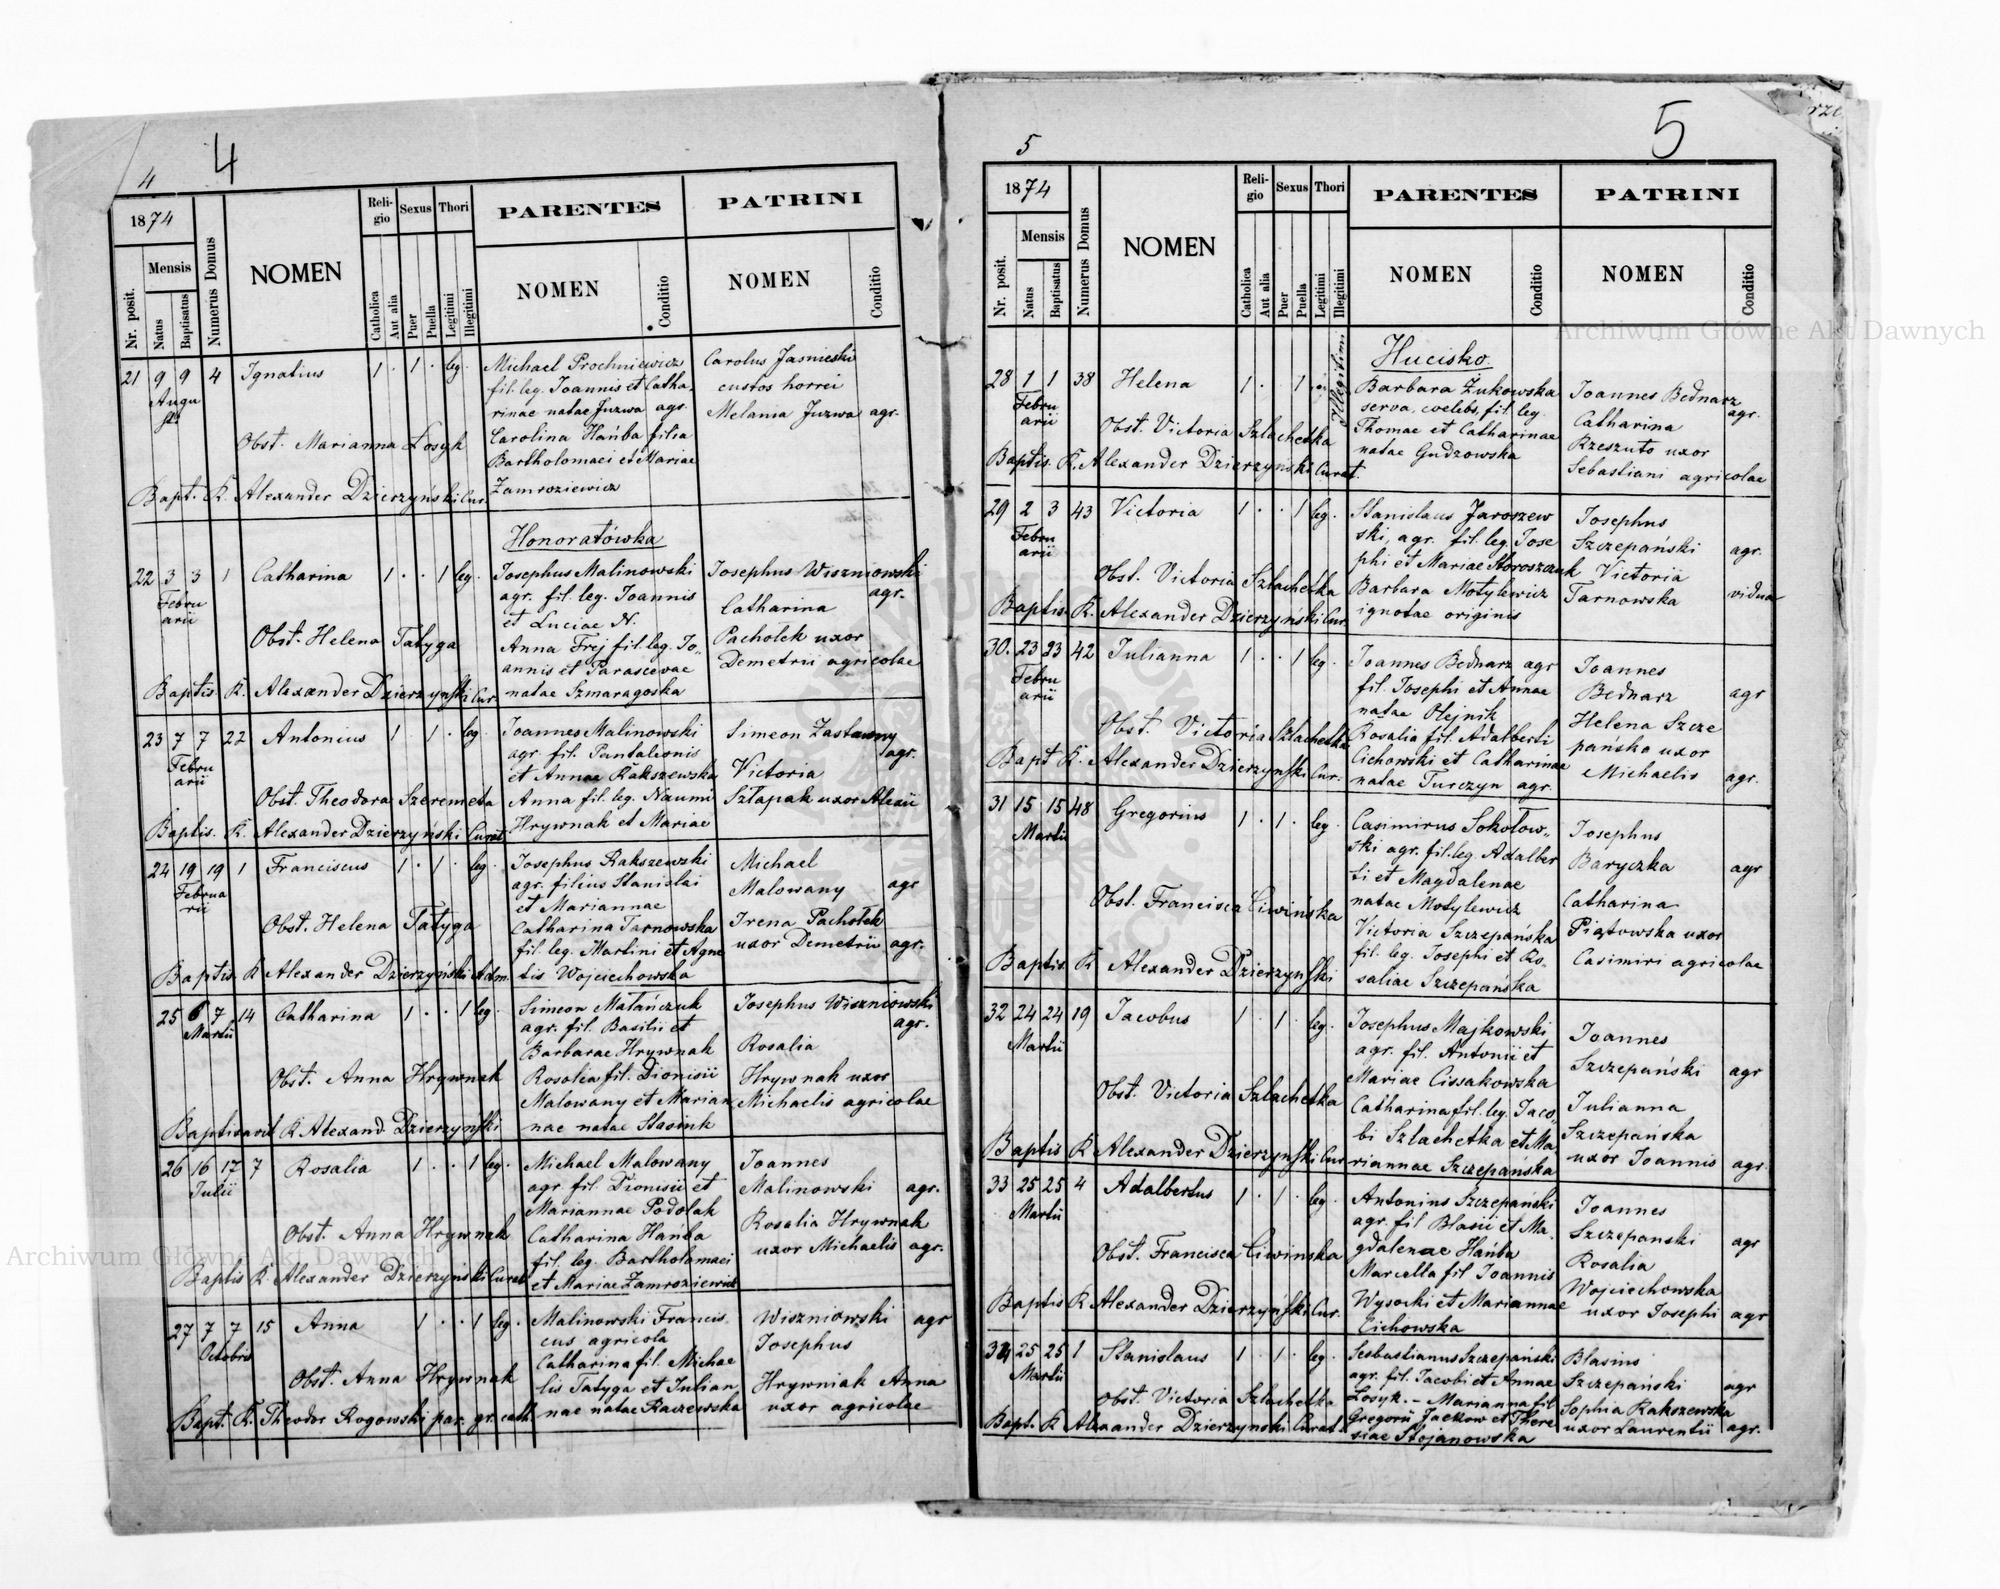 4
4
1874
Nr. posit.
Mensis
Natus
Baptisatus
Numerus Domus
NOMEN
Religio
Catholica
Aut alia
Sexus
Puer
Puella
Thori
Legitimi
Illegitimi
PARENTES
NOMEN
Conditio
PATRINI
NOMEN
Conditio
21 9 9 4 Ignatius 1 . 1 . leg.
Augu
sti
Michael Prochniewicz
fil. leg. Joannis et Catha„
rinae natae Juzwa agr.
Carolina Hańba filia
Bartholomaei et Mariae
Zamroziewicz
Carolus Jasnieski
custos horrei
Melania Juzwa agr.
Obst. Marianna Łosyk
Bapt. K. Alexander Dzierzyński Cur.
Honoratówka
22 3 3 1 Catharina 1 . . 1 leg.
Febru
arii
Josephus Malinowski
agr. fil. leg. Joannis
et Luciae N.
Anna Frej fil. leg. Jo„
annis et Parascevae
natae Szmaragoska
Josephus Wiszniowski
agr.
Catharina
Pachołek uxor
Demetrii agricolae
Obst. Helena Tatyga
Baptis. K. Alexander Dzierzyński Cur.
23 7 7 22 Antonius 1 . 1 . leg.
Febru
arii
Joannes Malinowski
agr. fil. Pantaleonis
et Annae Rakszewska
Anna fil. leg. Naumi
Hrywnak et Mariae
Simeon Zastawny
agr.
Victoria
Szłapak uxor Alexii
Obst. Theodora Szeremeta
Baptis. K. Alexander Dzierzyński Curat.
24 19 19 1 Franciscus 1 . 1 . leg.
Februa
rii
Josephus Rakszewski
agr. filius Stanislai
et Mariannae
Catharina Tarnowska
fil. leg. Martini et Agne
tis Wojciechowska
Michael
Malowany agr
Irena Pachołek
uxor Demetrii agr.
Obst. Helena Tatyga
Baptis. K Alexander Dzierzyński Adm.
25 6 7 14 Catharina 1 . . 1 leg.
Martii
Simeon Matańczuk
agr. fil. Basilii et
Barbarae Hrywnak
Rosalia fil. Dionisii
Malowany et Marian
nae natae Stasink
Josephus Wiszniowski
agr.
Rosalia
Hrywnak uxor
Michaelis agricolae
Obst. Anna Hrywnak
Baptisavit K Alexand. Dzierzyński
26 16 17 7 Rosalia 1 . . 1 leg.
Julii
Michael Malowany
agr. fil. Dionisii et
Mariannae Podolak
Catharina Hańba
fil. leg. Bartholomaei
et Mariae Zamroziewicz
Joannes
Malinowski agr.
Rosalia Hrywnak
uxor Michaelis agr.
Obst. Anna Hrywnak
Baptis K. Alexander Dzierzyński Curat
27 7 7 15 Anna 1 . . 1 leg.
Octobris
Malinowski Francis„
cus agricola
Catharina fil. Michae
lis Tatyga et Julian
nae natae Raczewska
Wiszniowski agr
Josephus
Hrywniak Anna
uxor agricolae
Obst. Anna Hrywnak
Bapt. K. Theodor Rogowski par. gr. cath.
5
5
1874
Nr. posit.
Mensis
Natus
Baptisatus
Numerus Domus
NOMEN
Religio
Catholica
Aut alia
Sexus
Puer
Puella
Thori
Legitimi
Illegitimi
PARENTES
NOMEN
Conditio
PATRINI
NOMEN
Conditio
Hucisko.
28 1 1 38 Helena 1 . . 1
Illegitimi
Febru
arii
Barbara Żukowska
serva, coelebs, fil. leg.
Thomae et Catharinae
natae Gudzowska
Joannes Bednarz
agr.
Catharina
Rzeszuto uxor
Sebastiani agricolae
Obst. Victoria Szlachetka
Baptis. K. Alexander Dzierzyński Curat.
29 2 3 43 Victoria 1 . . 1 leg.
Febru
arii
Stanislaus Jaroszew
ski, agr. fil. leg. Jose
phi et Mariae Storoszczuk
Barbara Motylewicz
ignotae originis
Josephus
Szczepański agr.
Victoria
Tarnowska vidua
Obst. Victoria Szlachetka
Baptis. K. Alexander Dzierzyński Cur.
30. 23 23 42 Julianna 1 . . 1 leg.
Febru
arii
Joannes Bednarz agr
fil. Josephi et Annae
natae Olejnik
Rosalia fil. Adalberti
Cichowski et Catharinae
natae Turczyn agr.
Joannes
Bednarz agr
Helena Szcze
pańska uxor
Michaelis agr.
Obst. Victoria Szlachetka
Bapt K. Alexander Dzierzyński Cur.
31 15 15 48 Gregorius 1 . 1 . leg.
Martii
Casimirus Sokołow„
ski agr. fil. leg. Adalber
ti et Magdalenae
natae Motylewicz
Victoria Szczepańska
fil. leg. Josephi et Ro„
saliae Szczepańska
Josephus
Baryczka agr
Catharina
Piątowska uxor
Casimiri agricolae
Obst. Francisca Ciwińska
Baptis. K Alexander Dzierzyński
32 24 24 19 Jacobus 1 . 1 . leg.
Martii
Josephus Majkowski
agr. fil. Antonii et
Mariae Cissakowska
Catharina fil. leg. Jaco„
bi Szlachetka et Ma„
riannae Szczepanska
Joannes
Szczepański agr
Julianna
Szczepańska
uxor Joannis agr.
Obst. Victoria Szlachetka
Baptis K Alexander Dzierzyński Cur
33 25 25 4 Adalbertus 1 . 1 . leg.
Martii
Antonius Szczepański
agr. fil Blasii et Ma„
gdalenae Hańba
Marcella fil Joannis
Wysocki et Mariannae
Cichowska
Joannes
Szczepanski agr
Rosalia
Wojciechowska
uxor Josephi agr
Obst. Francisca Ciwinska
Baptis K Alexander Dzierzyński Cur.
34 25 25 1 Stanislaus 1 . 1 . leg.
Martii
Sesbastianus Szczepański
agr. fil. Jacobi et Annae
Łosyk. – Marianna fil
Gregorii Jackow et There
siae Stojanowska
Blasius
Szczepański agr
Sophia Rakszewska
uxor Laurentii agr.
Obst. Victoria Szlachetka
Bapt. K Alexander Dzierzynski Curat.
Archiwum Główne Akt Dawnych
Archiwum Główne Akt Dawnych